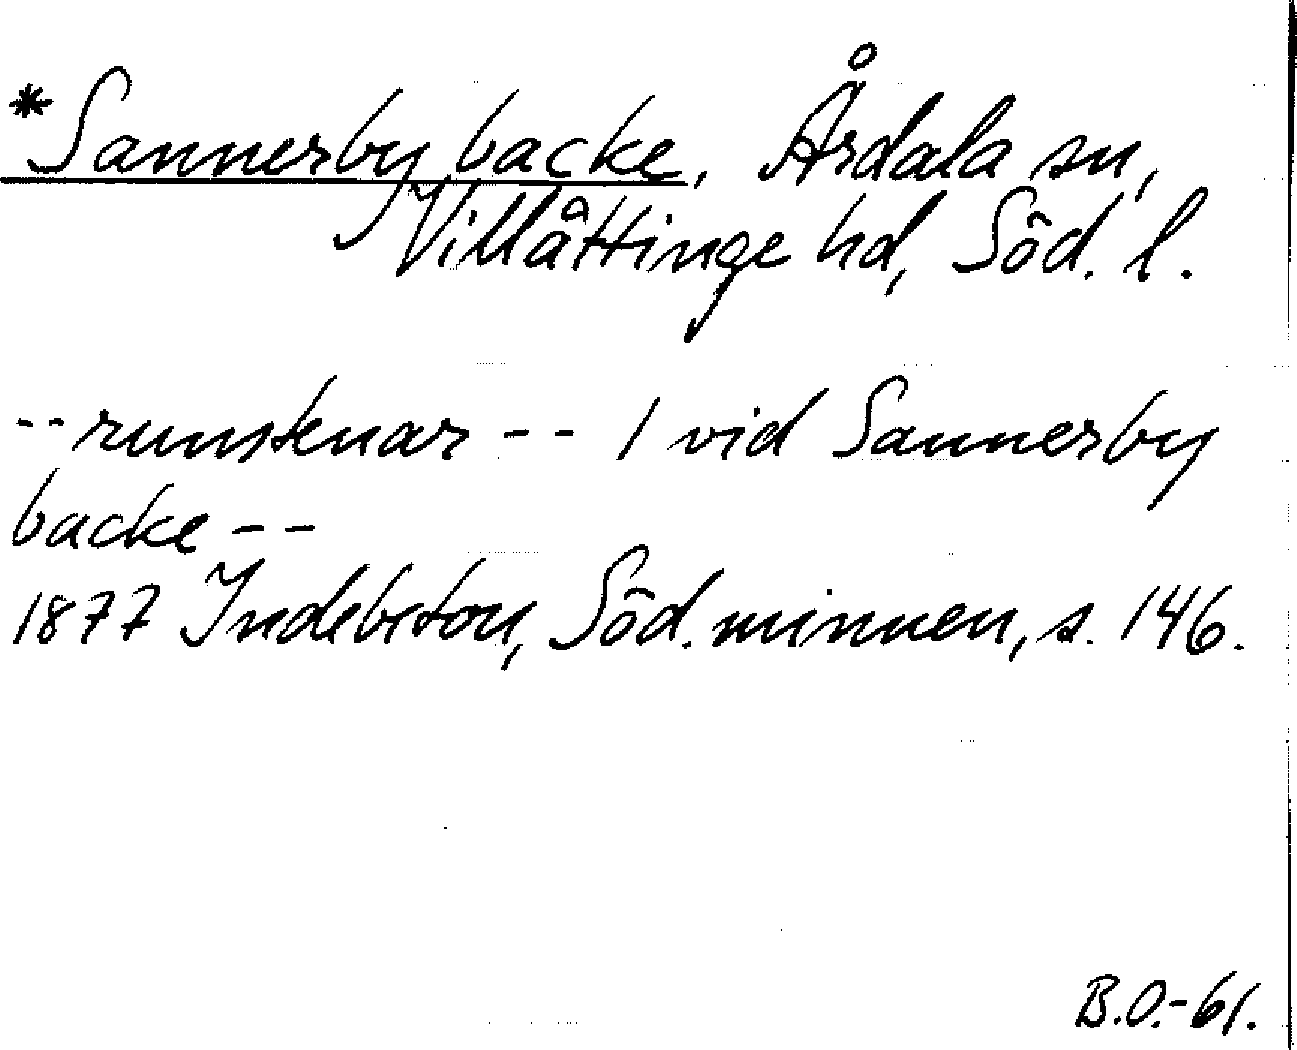 *Sannerby backe, Årdala sn,
Villåttinge hd, Söd. l.
-- runstenar -- 1 vid Sannerby
backe --
1877 Indebetou, Söd. minnen, s. 146.
B.O.-61.